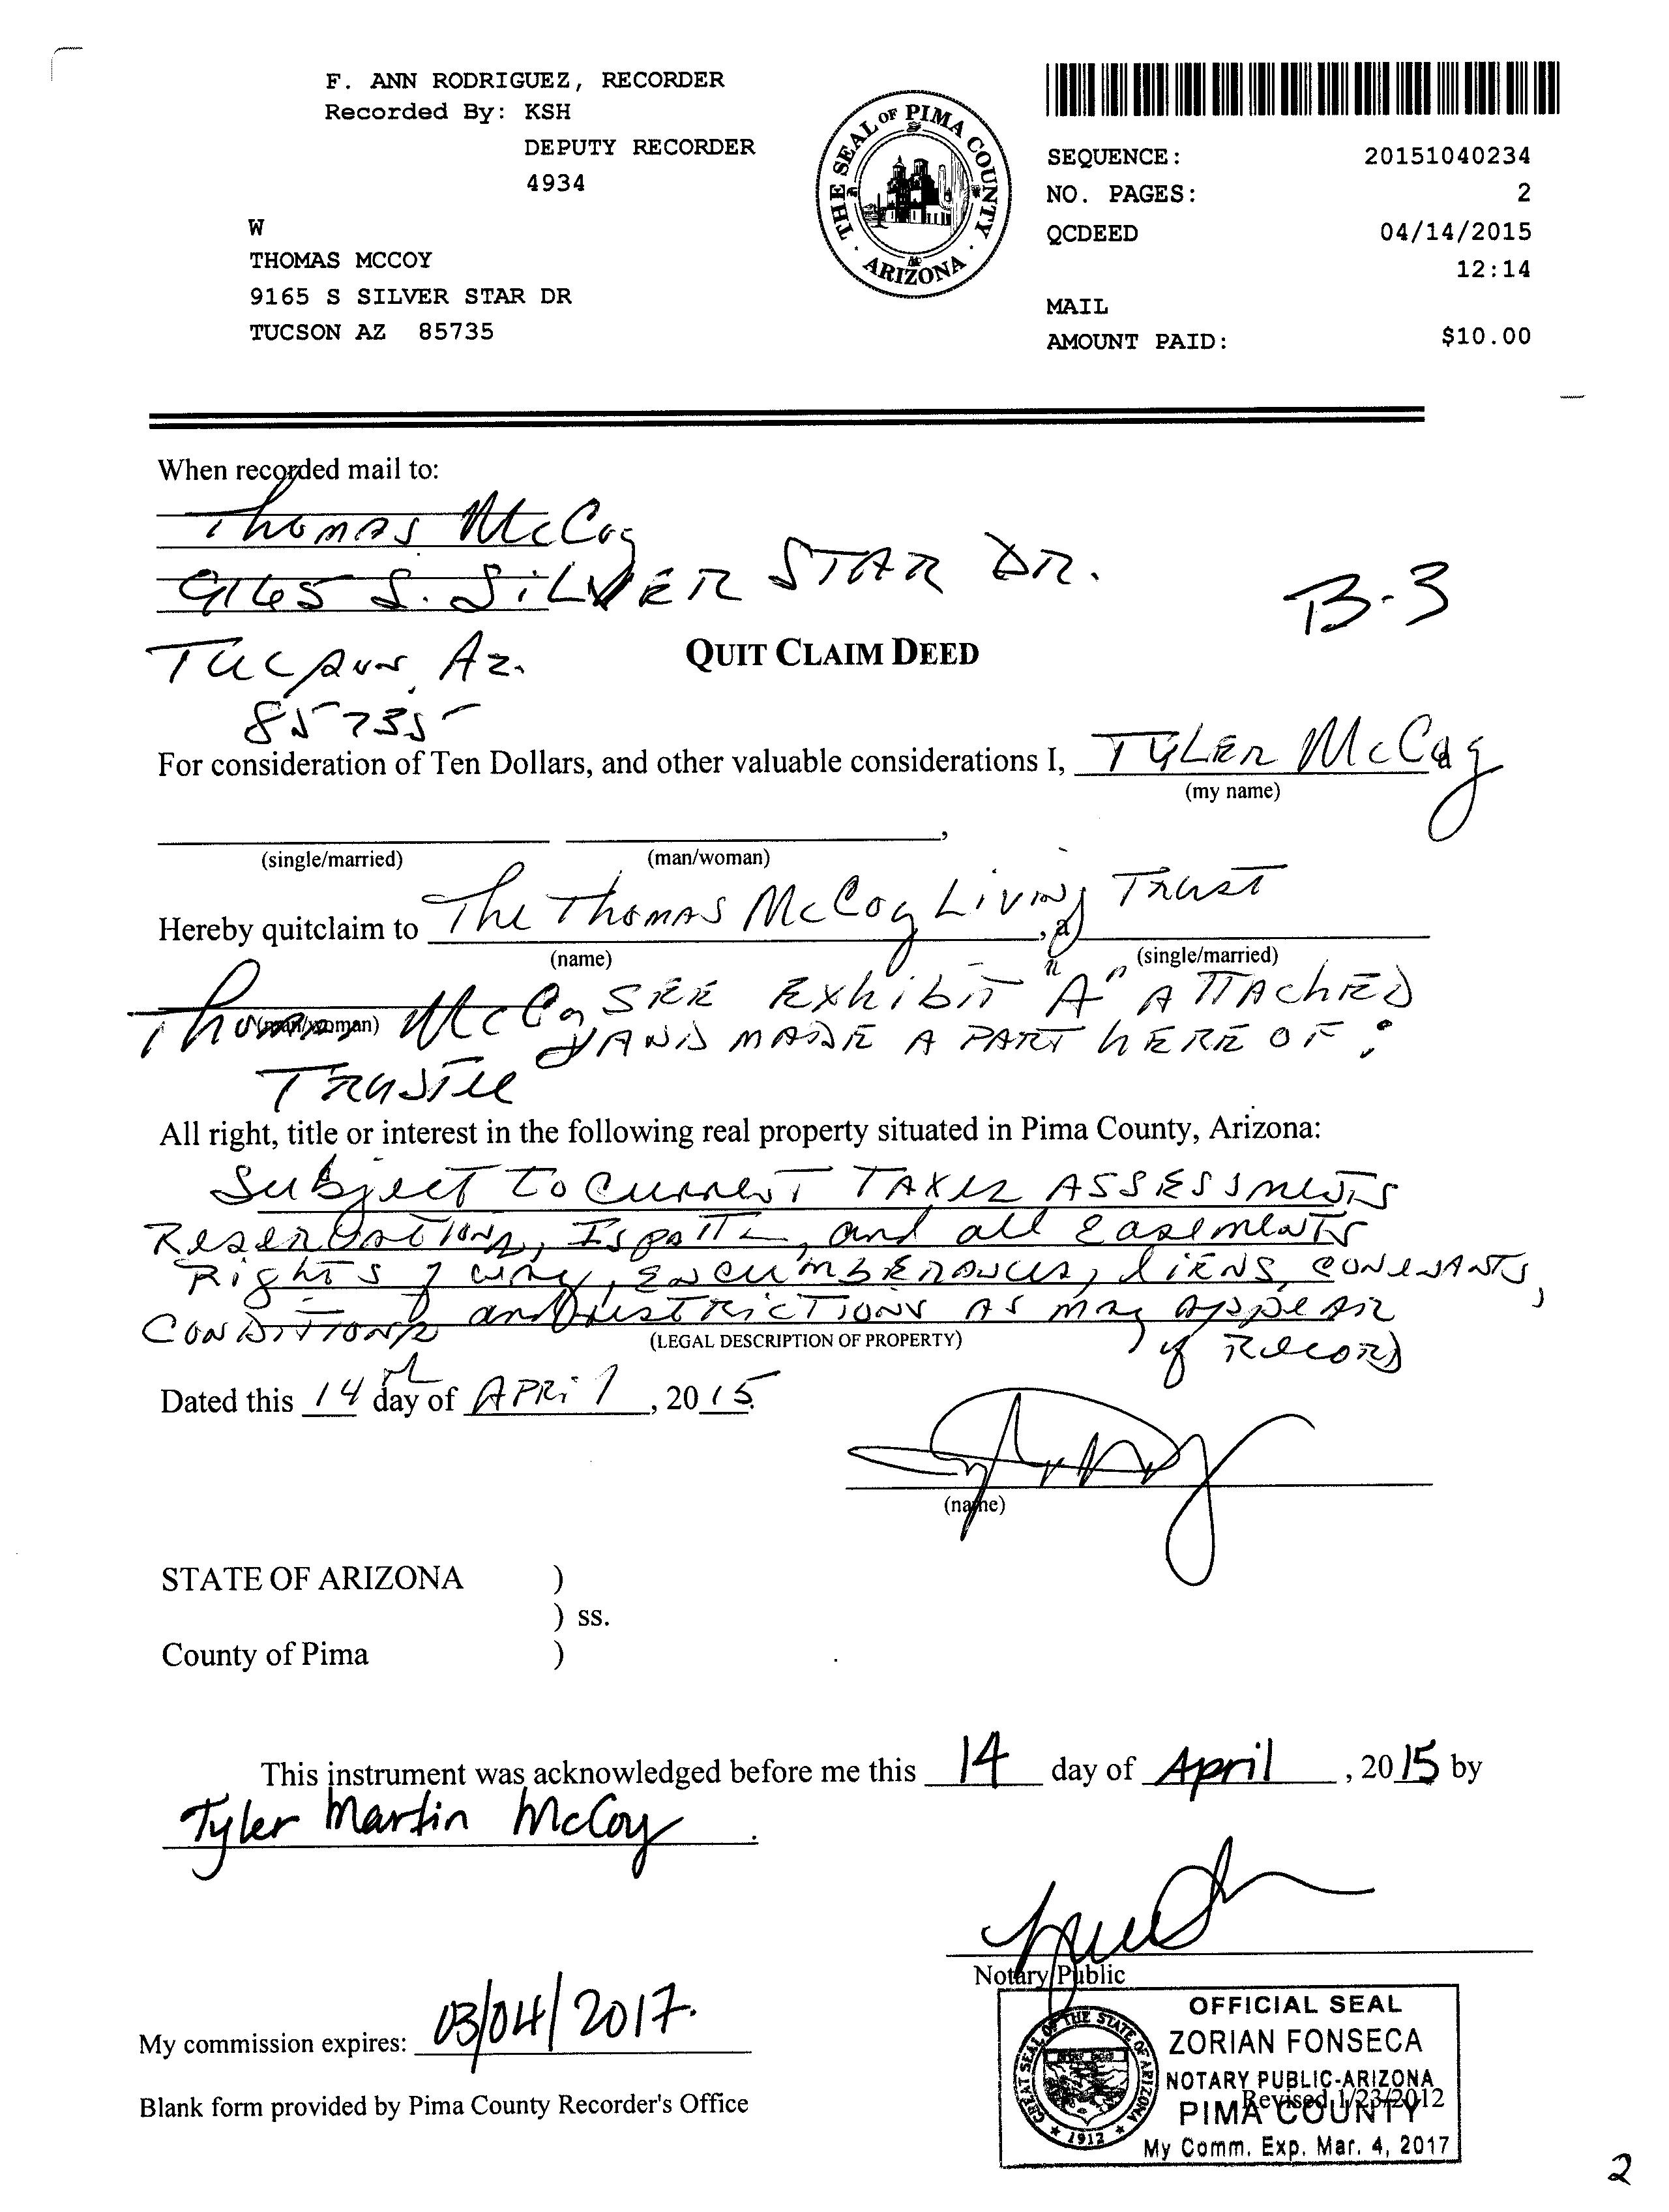 F. ANN RODRIGUEZ, RECORDER
Recorded By: KSH
DEPUTY RECORDER
4934
W
THOMAS MCCOY
9165 S SILVER STAR DR
TUCSON AZ 85735
THE SEAL OF PIMA COUNTY
ARIZONA
SEQUENCE: 20151040234
NO. PAGES: 2
QCDEED 04/14/2015
12:14
MAIL
AMOUNT PAID: $10.00
When recorded mail to:
Thomas McCoy
9165 S. SILVER STAR DR.
B-3
Tucson, Az.
QUIT CLAIM DEED
85735
For consideration of Ten Dollars, and other valuable considerations I, TYLER McCoy
(my name)
(single/married) (man/woman) ,
Hereby quitclaim to The Thomas McCoy Living Trust , a
(name) (single/married)
Thomas McCoy SEE Exhibit "A" ATTAChED
(man/woman)
AND MADE A PART hERE OF:
Trustee
All right, title or interest in the following real property situated in Pima County, Arizona:
Subject to Current TAXES ASSESSMENTS
Reservations, and all easements
Rights of way, encumberances, liENS, covenants,
CONDITIONS and restrictions AS may appear
(LEGAL DESCRIPTION OF PROPERTY)
of Record
Dated this 14th day of APRil , 2015.
(name)
STATE OF ARIZONA )
) ss.
County of Pima )
This instrument was acknowledged before me this 14 day of April , 2015 by
Tyler Martin McCoy .
Notary Public
My commission expires: 03/04/2017.
Blank form provided by Pima County Recorder's Office
OFFICIAL SEAL
ZORIAN FONSECA
NOTARY PUBLIC-ARIZONA
Revised 1/23/2012
PIMA COUNTY
My Comm. Exp. Mar. 4, 2017
GREAT SEAL OF THE STATE OF ARIZONA
1912
2